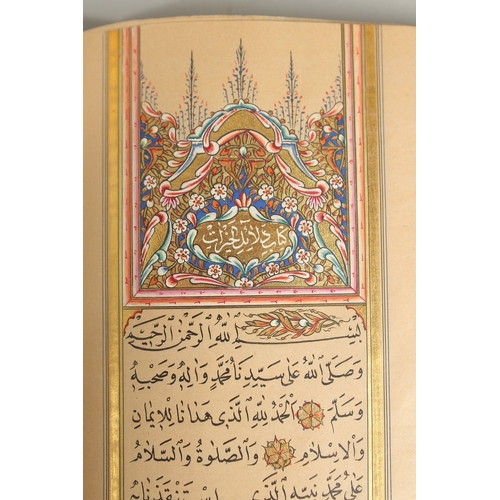 كتاب دلائل الخيرات
بِسْمِ اللهِ الرَّحْمٰنِ الرَّحِيمِ
وَصَلَّى اللهُ عَلَى سَيِّدِنَا مُحَمَّدٍ وَاٰلِهِ وَصَحْبِهِ
وَسَلَّمَ اَلْحَمْدُ لِلهِ الَّذِي هَدَانَا لِلْاِيمَانِ
وَالْاِسْلَامِ وَالصَّلٰوةُ وَالسَّلَامُ
عَلَى مُحَمَّدٍ نَبِيِّهِ الَّذِي اسْتَنْقَذَنَا بِهِ